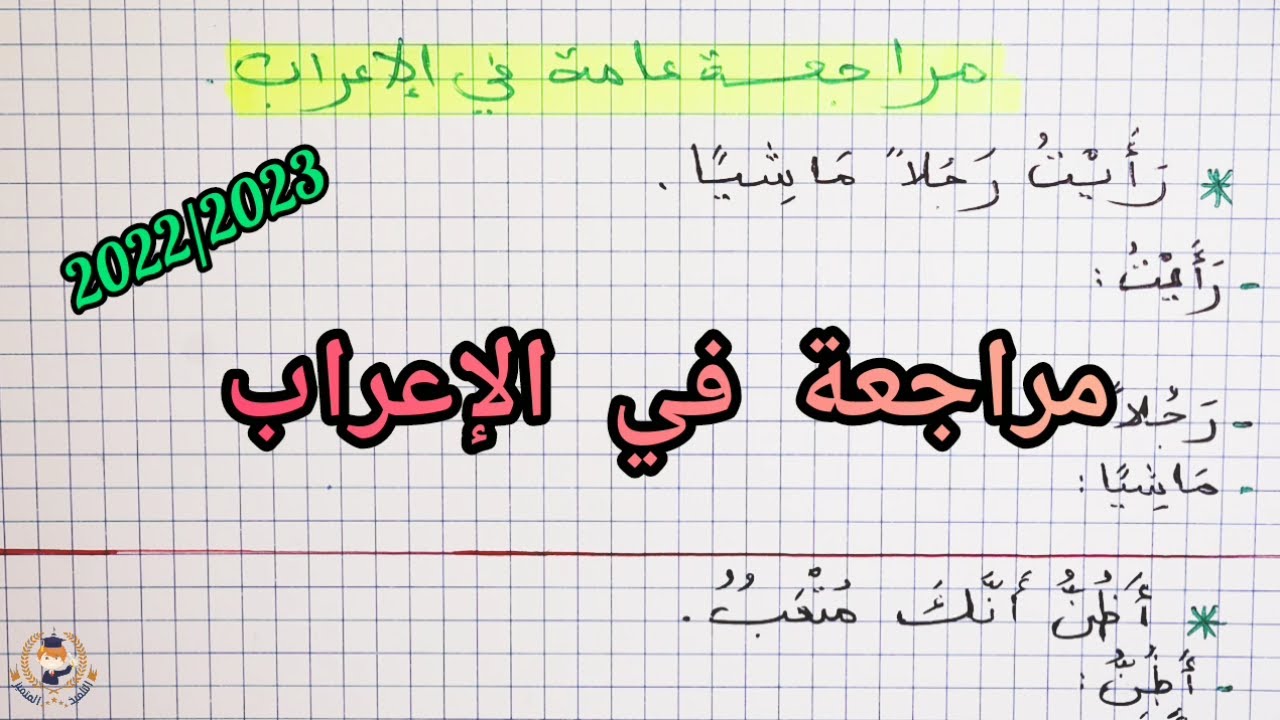 مراجعة عامة في الإعراب.
* رَأَيْتُ رَجُلاً مَاشِيًا.
2022/2023
- رَأَيْتُ:
مراجعة في الإعراب
- رَجُلاً
- مَاشِيًا:
* أَظُنُّ أَنَّكَ مُتْعَبٌ.
- أَظُنُّ:
التلميذ المتميز